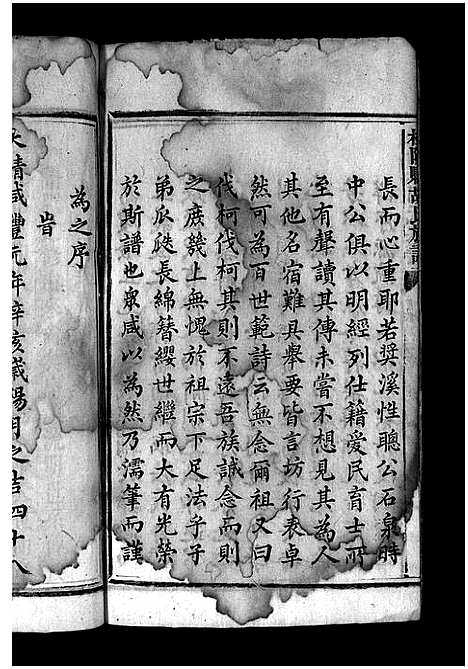 長而心重耶若奬溪性聰公石泉時
中公俱以明經列仕籍愛民育士所
至有聲讀其傳未嘗不想見其為人
其他名宿難具舉要皆言坊行表卓
然可為百世範詩云無念爾祖又曰
伐柯伐柯其則不遠吾族誠念而則
之庶幾上無愧於祖宗下足法乎子
弟瓜瓞長綿簪纓世繼而大有光榮
於斯譜也衆咸以為然乃濡筆而謹
為之序
旹
大清咸豐元年辛亥歲陽月之吉四十八